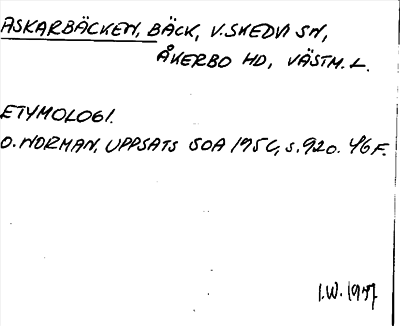 ASKARBÄCKEN, BÄCK, V. SKEDVI SN,
ÅKERBO HD, VÄSTM. L.
ETYMOLOGI.
O. NORMAN, UPPSATS SOA 195C, S. 920. 46 F.
I.W. 1977